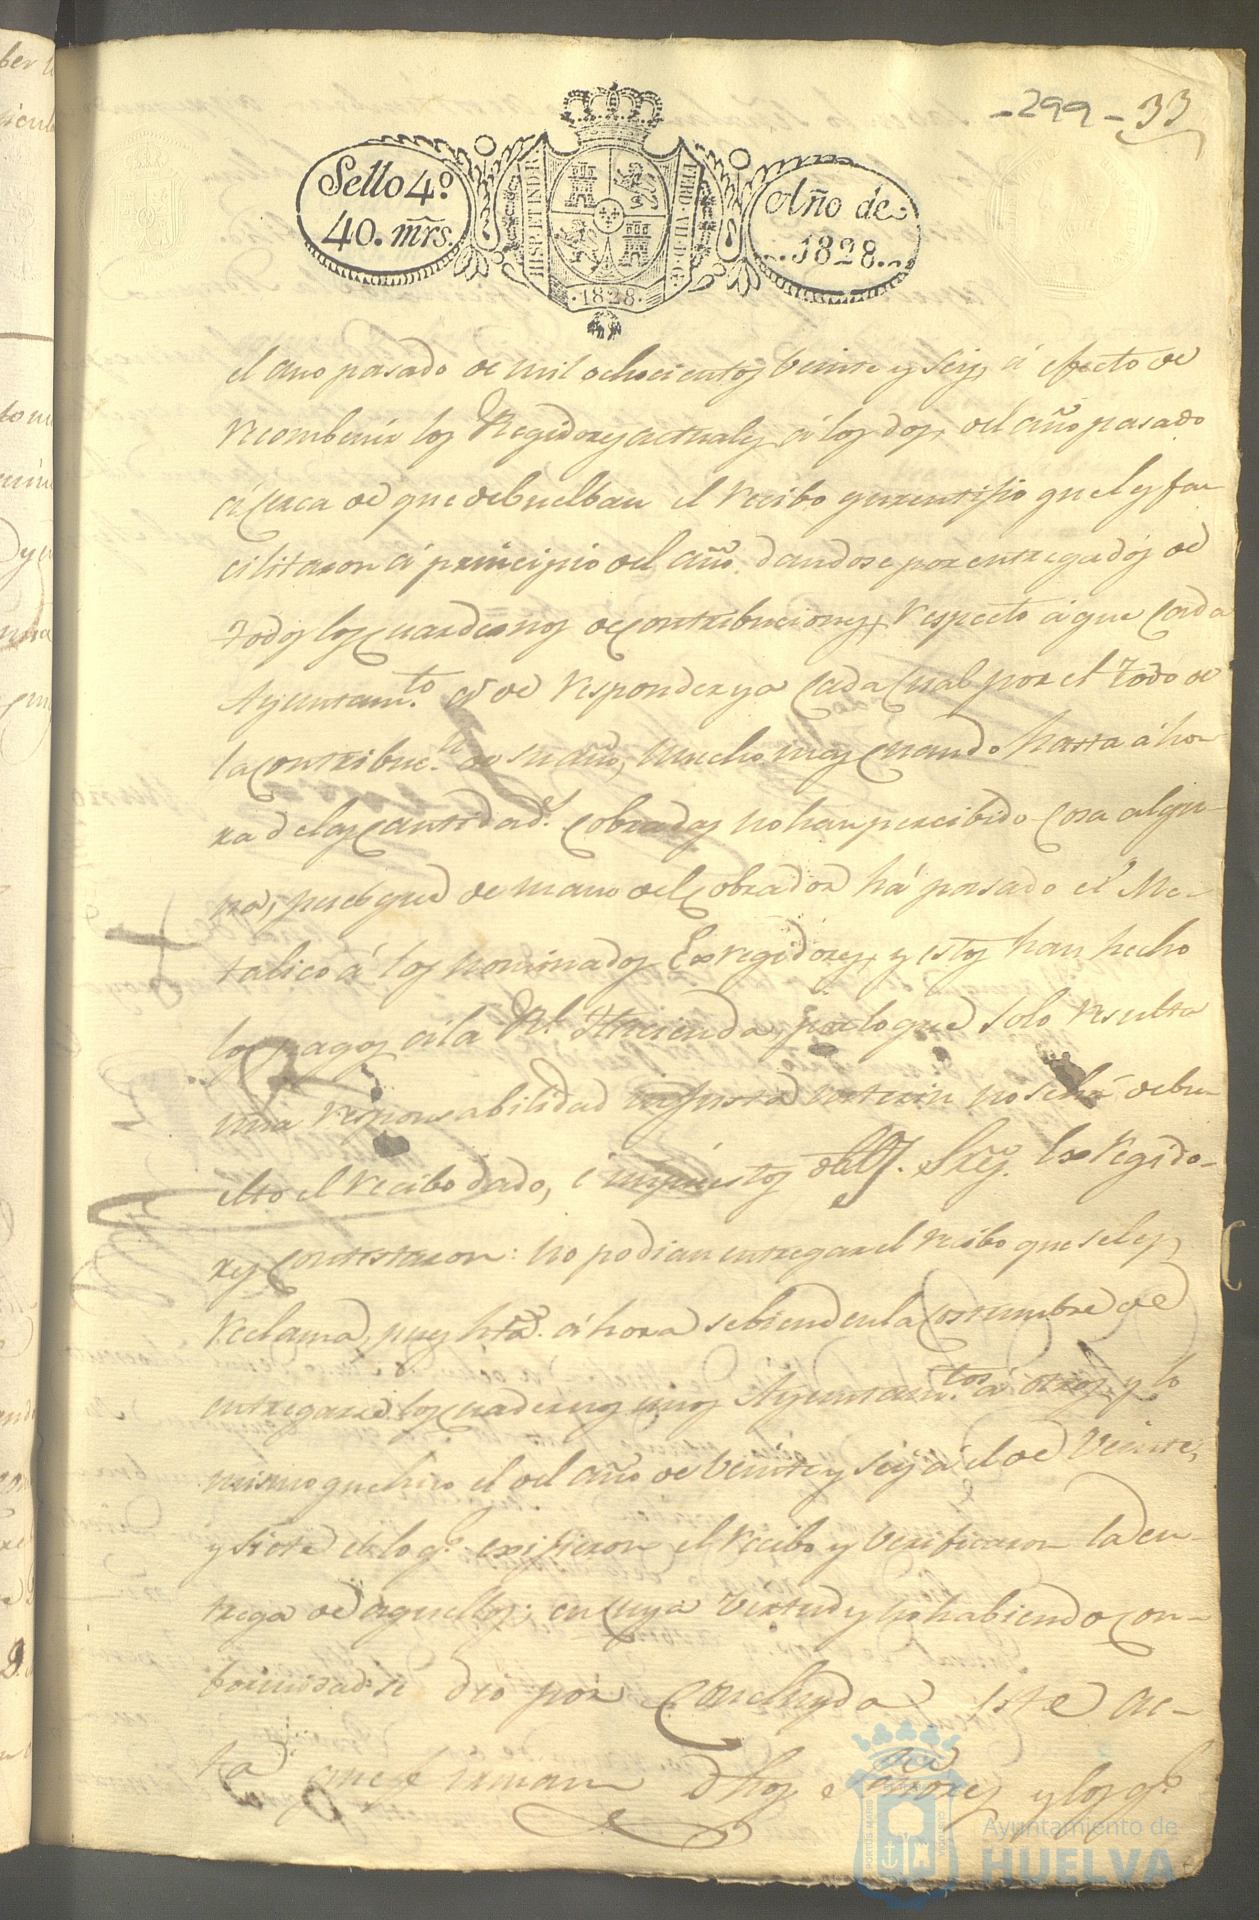 -299- 33
Sello 4º
40. mrs.
HISP. ET IND. R.
FERD. VII. D. G.
1828
Año de
1828.
el año pasado de mil ochocientos veinte y seis, á efecto de
recombenir los Regidores actuales á los dos, del año pasado
á cerca de que debuelban el recibo que les fa
cilitaron á principio del año, dandose por entregados de
todos los cuadernos de contribuciones, respecto á que cada
Ayuntam.to á de responder ya cada cual por el todo de
la contribuc.n de su año, mucho mas cuando hasta áho
ra de las cantidad.s cobradas no han percibido cosa algu
na, pues que de mano del Cobrador há pasado el Me-
talico á los nominados Exregidores, y estos han hecho
los pagos á la Rl. Hacienda, por lo que solo resulta
una responsabilidad injusta no se há debu
elto el recibo dado, é impuestos Sres. Exregido-
res contestaron: no podian entregar el recibo que se les
reclama, pues hta. áhora sebiendo en la costumbre de
entregarse los cuadernos unos Ayuntam.tos á otros, y lo
mismo que hizo el del año de veinte y seis á el de veinte
y siete de lo q.e exijieron el recibo y verificaron la en-
trega de aquellos; en cuya virtud y no habiendo con-
formidad se dió por concluyda este ac-
ta que firman dhos señores y los q.e
Ayuntamiento de
HUELVA